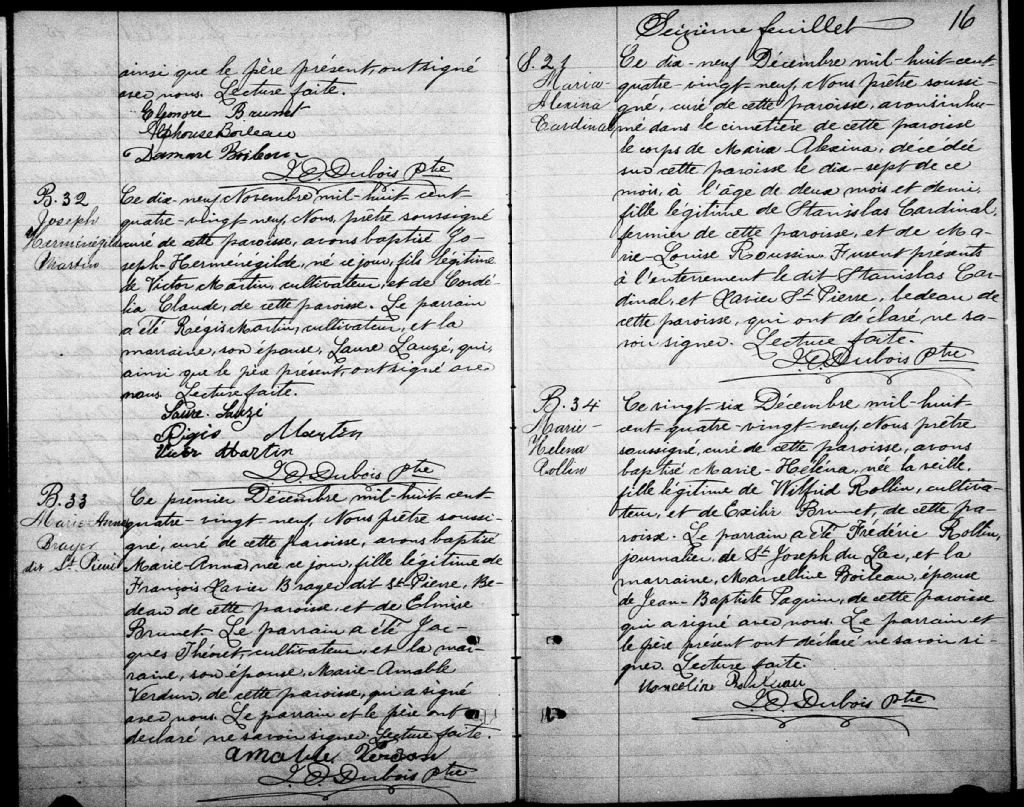 ainsi que le père présent, ont signé
avec nous. Lecture faite.
Elémore Brunet
Alphonse Boileau
Damase Boileau
J. O. Dubois Ptre
B. 32
Joseph
Herménégilde
Martin
Ce dix-neuf Novembre mil-huit cent
quatre-vingt-neuf, Nous, prêtre soussigné
curé de cette paroisse, avons baptisé Jo-
seph-Herménégilde, né ce jour, fils légitime
de Victor Martin, cultivateur, et de Cordé-
lia Claude, de cette paroisse. Le parrain
a été Régis Martin, cultivateur, et la
marraine, son épouse, Laure Lauzé, qui,
ainsi que le père présent, ont signé avec
nous. Lecture faite.
Laure Lauzé
Régis Martin
Victor Martin
J. O. Dubois Ptre
B. 33
Marie Anne
Brayer
dit St. Pierre
Ce premier Décembre mil-huit cent
quatre-vingt-neuf, Nous prêtre soussi-
gné, curé de cette paroisse, avons baptisé
Marie-Anna, née ce jour, fille légitime de
François-Xavier Brayer dit St-Pierre, Be-
deau de cette paroisse, et de Elmise
Brunet. Le parrain a été Jac-
ques Théoret, cultivateur, et la mar-
raine, son épouse, Marie-Amable
Verdun, de cette paroisse, qui a signé
avec nous. Le parrain et le père ont
déclaré ne savoir signer. Lecture faite.
Amable Verdon
J. O. Dubois Ptre
Seizième feuillet 16
S. 21
Maria
Alexina
Cardinal
Ce dix-neuf Décembre mil-huit-cent-
quatre-vingt-neuf, Nous prêtre soussi-
gné, curé de cette paroisse, avons inhu-
mé dans le cimetière de cette paroisse
le corps de Maria-Alexina, décédée
sur cette paroisse le dix-sept de ce
mois, à l'âge de deux mois et demi,
fille légitime de Stanislas Cardinal,
fermier de cette paroisse, et de Ma-
rie-Louise Roussin. Furent présents
à l'enterrement le dit Stanislas Car-
dinal, et Xavier St. Pierre, bedeau de
cette paroisse, qui ont déclaré ne sa-
voir signer. Lecture faite.
J. O. Dubois Ptre
B. 34
Marie-
Helena
Rollin
Ce vingt-six Décembre mil-huit
cent-quatre-vingt-neuf, Nous prêtre
soussigné, curé de cette paroisse, avons
baptisé Marie-Héléna, née la veille,
fille légitime de Wilfrid Rollin, cultiva-
teur, et de Exilir Brunet, de cette pa-
roisse. Le parrain a été Frédéric Rollin,
journalier, de St Joseph du Lac, et la
marraine, Marcelline Boileau, épouse
de Jean-Baptiste Paquin, de cette paroisse
qui a signé avec nous. Le parrain et
le père présent ont déclaré ne savoir si-
gner. Lecture faite.
J. O. Dubois Ptre